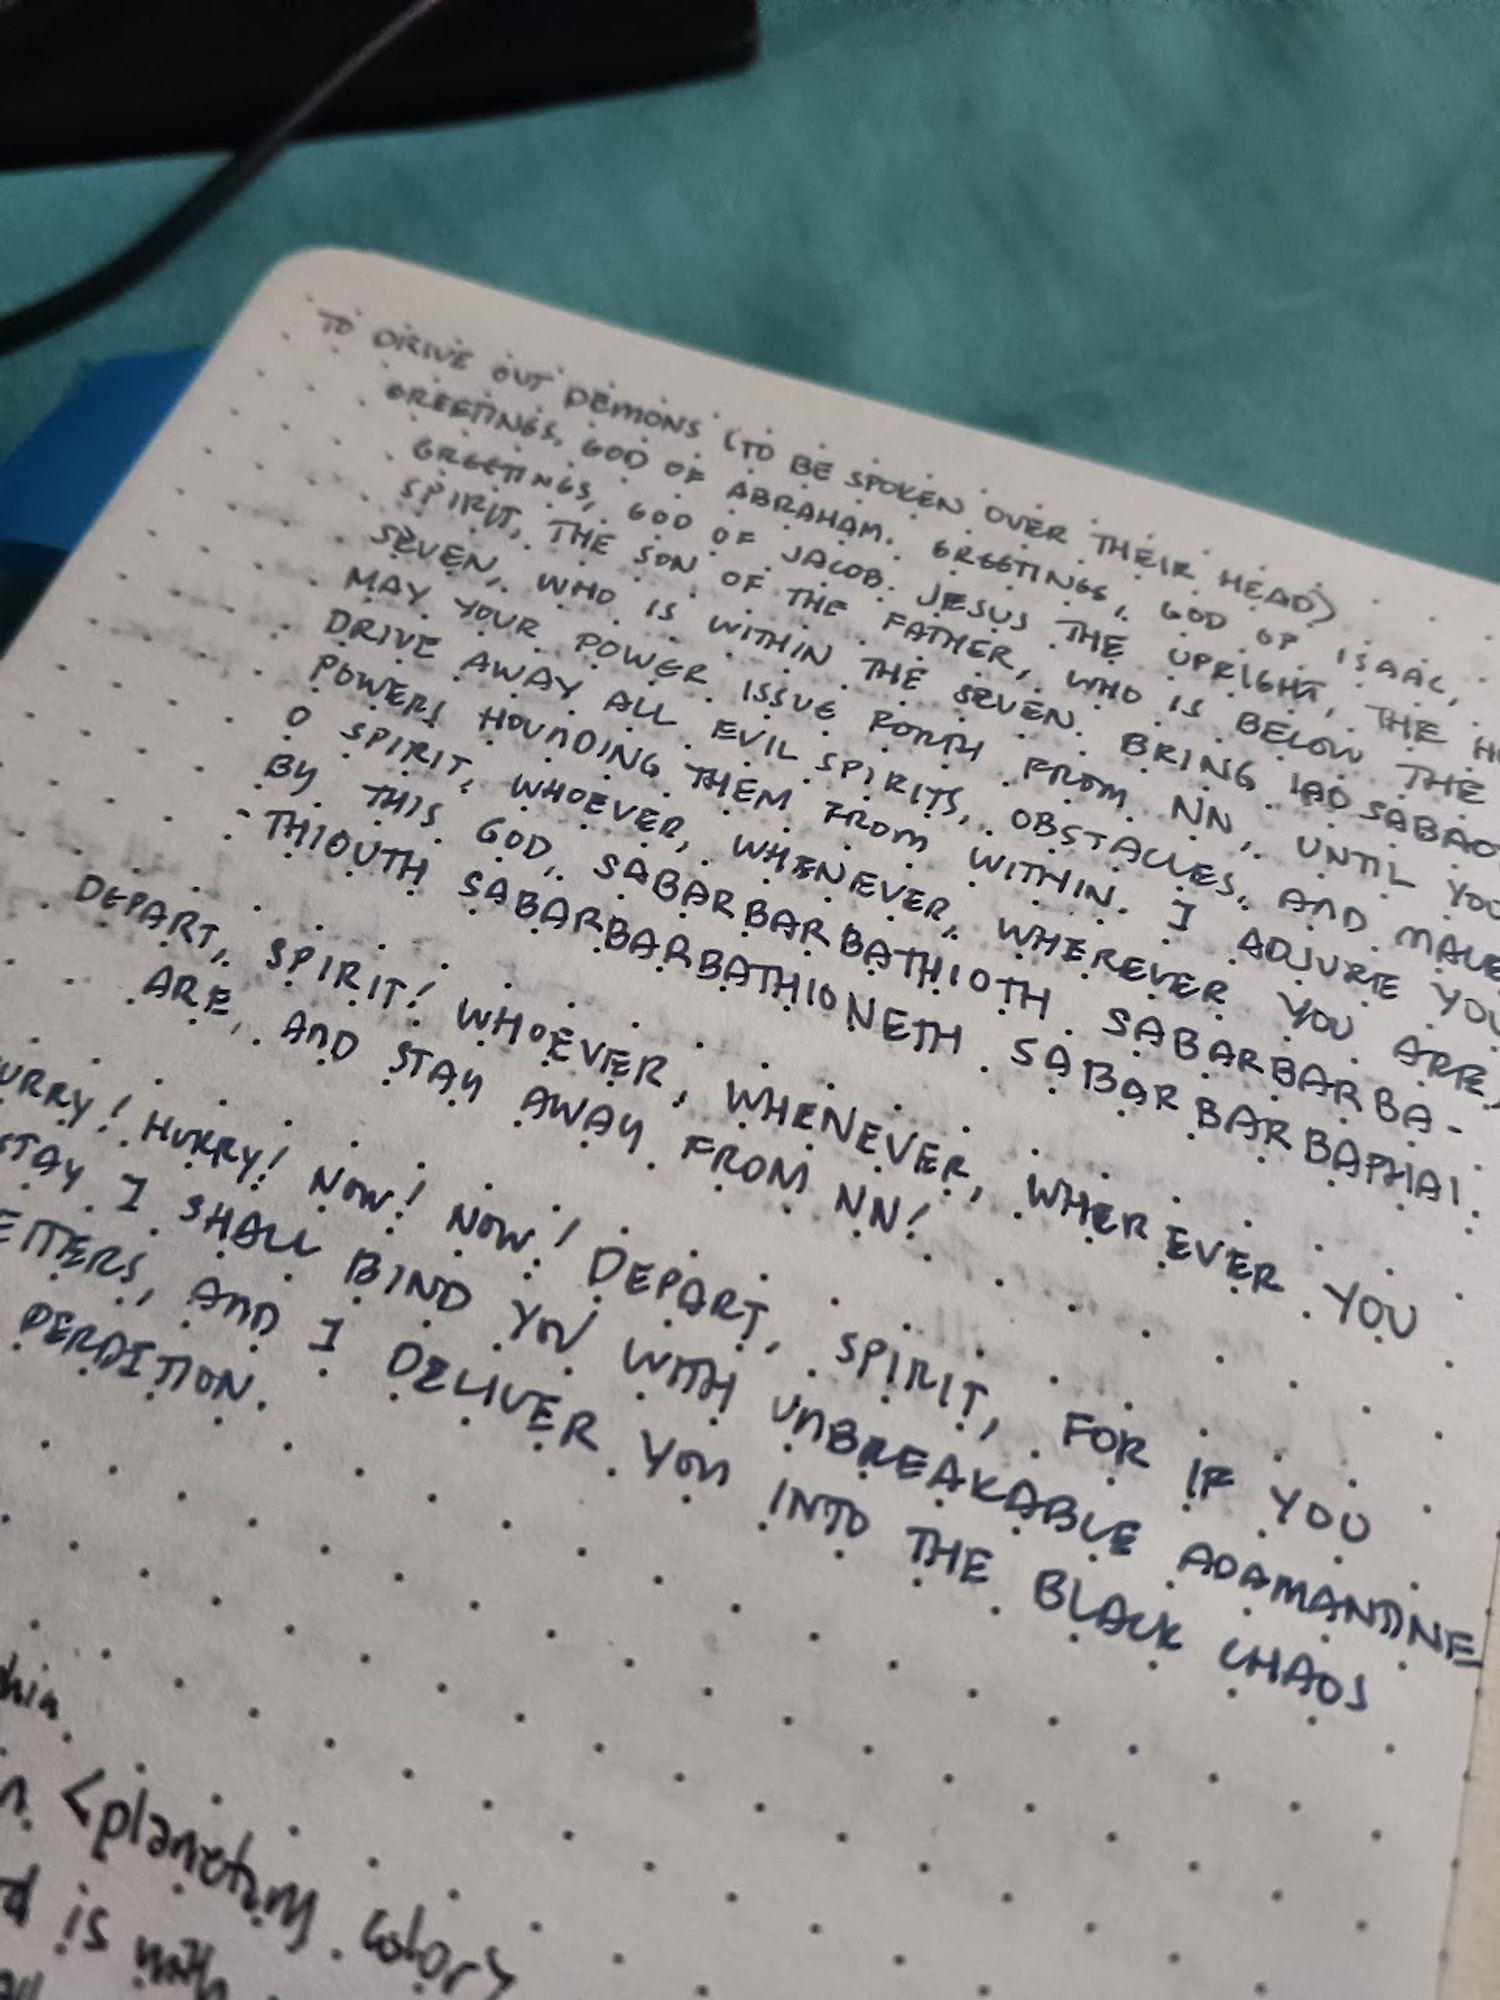 TO DRIVE OUT DEMONS (TO BE SPOKEN OVER THEIR HEAD)
GREETINGS, GOD OF ABRAHAM. GREETINGS, GOD OF ISAAC,
GREETINGS, GOD OF JACOB. JESUS THE UPRIGHT, THE
SPIRIT, THE SON OF THE FATHER, WHO IS BELOW THE
SEVEN, WHO IS WITHIN THE SEVEN. BRING IAO SABAO
MAY YOUR POWER ISSUE FORTH FROM NN, UNTIL YOU
DRIVE AWAY ALL EVIL SPIRITS, OBSTACLES, AND
POWERS HOUNDING THEM FROM WITHIN. I ADJURE YOU
O SPIRIT, WHOEVER, WHENEVER, WHEREVER YOU ARE,
BY THIS GOD, SABARBARBATHIOTH SABARBARBA-
-THIOUTH SABARBARBATHIONETH SABARBARBAPHAI.
DEPART, SPIRIT! WHOEVER, WHENEVER, WHEREVER YOU
ARE, AND STAY AWAY FROM NN!
URRY! HURRY! NOW! NOW! DEPART, SPIRIT, FOR IF YOU
STAY I SHALL BIND YOU WITH UNBREAKABLE ADAMANTINE
ETTERS, AND I DELIVER YOU INTO THE BLACK CHAOS
PERDITION.